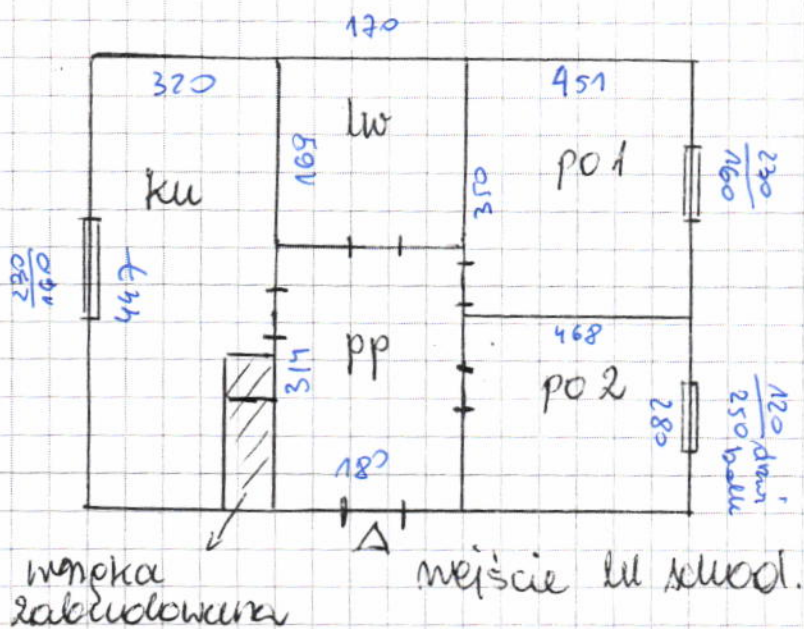 170
320
451
169
łw
po 1
ku
350
230
160
230
160
447
314
pp
468
po 2
280
120
250
drzwi
balk
180
wnęka
zabudowana
wejście kl schod.